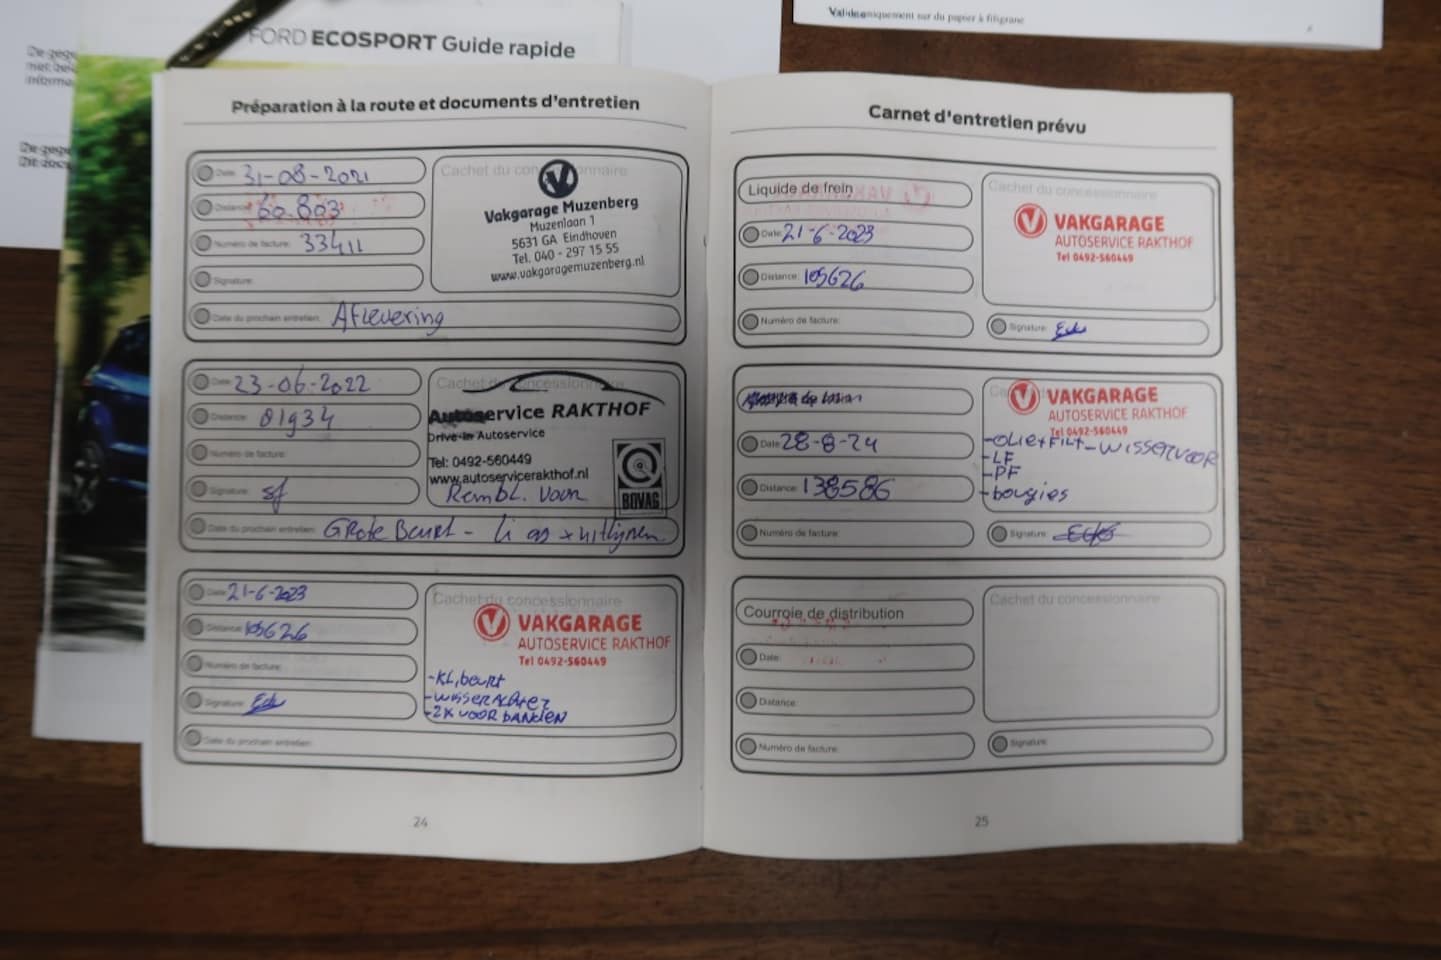 Valable uniquement sur du papier à filigrane
FORD ECOSPORT Guide rapide
Préparation à la route et documents d'entretien
Date: 31-08-2021
Distance: 60.803
Numéro de facture: 33411
Signature:
Date du prochain entretien: Aflevering
Cachet du concessionnaire
Vakgarage Muzenberg
Muzenlaan 1
5631 GA Eindhoven
Tel. 040 - 297 15 55
www.vakgaragemuzenberg.nl
Date: 23-06-2022
Distance: 81934
Numéro de facture:
Signature:
Date du prochain entretien: Grote Beurt - li as + uitlijnen
Cachet du concessionnaire
Autoservice RAKTHOF
Drive-in Autoservice
Tel: 0492-560449
www.autoservicerakthof.nl
Rembl. Voor
BOVAG
Date: 21-6-2023
Distance: 105626
Numéro de facture:
Signature:
Date du prochain entretien:
Cachet du concessionnaire
VAKGARAGE
AUTOSERVICE RAKTHOF
Tel 0492-560449
-KL, beurt
-wisser Achter
-2x voor banden
24
Carnet d'entretien prévu
Liquide de frein
Date: 21-6-2023
Distance: 105626
Numéro de facture:
Cachet du concessionnaire
VAKGARAGE
AUTOSERVICE RAKTHOF
Tel 0492-560449
Signature:
Date: 28-8-24
Distance: 138586
Numéro de facture:
VAKGARAGE
AUTOSERVICE RAKTHOF
Tel 0492-560449
-olie+Filt - wisser voor
-LF
-PF
-bougies
Signature:
Courroie de distribution
Date:
Distance:
Numéro de facture:
Cachet du concessionnaire
Signature:
25